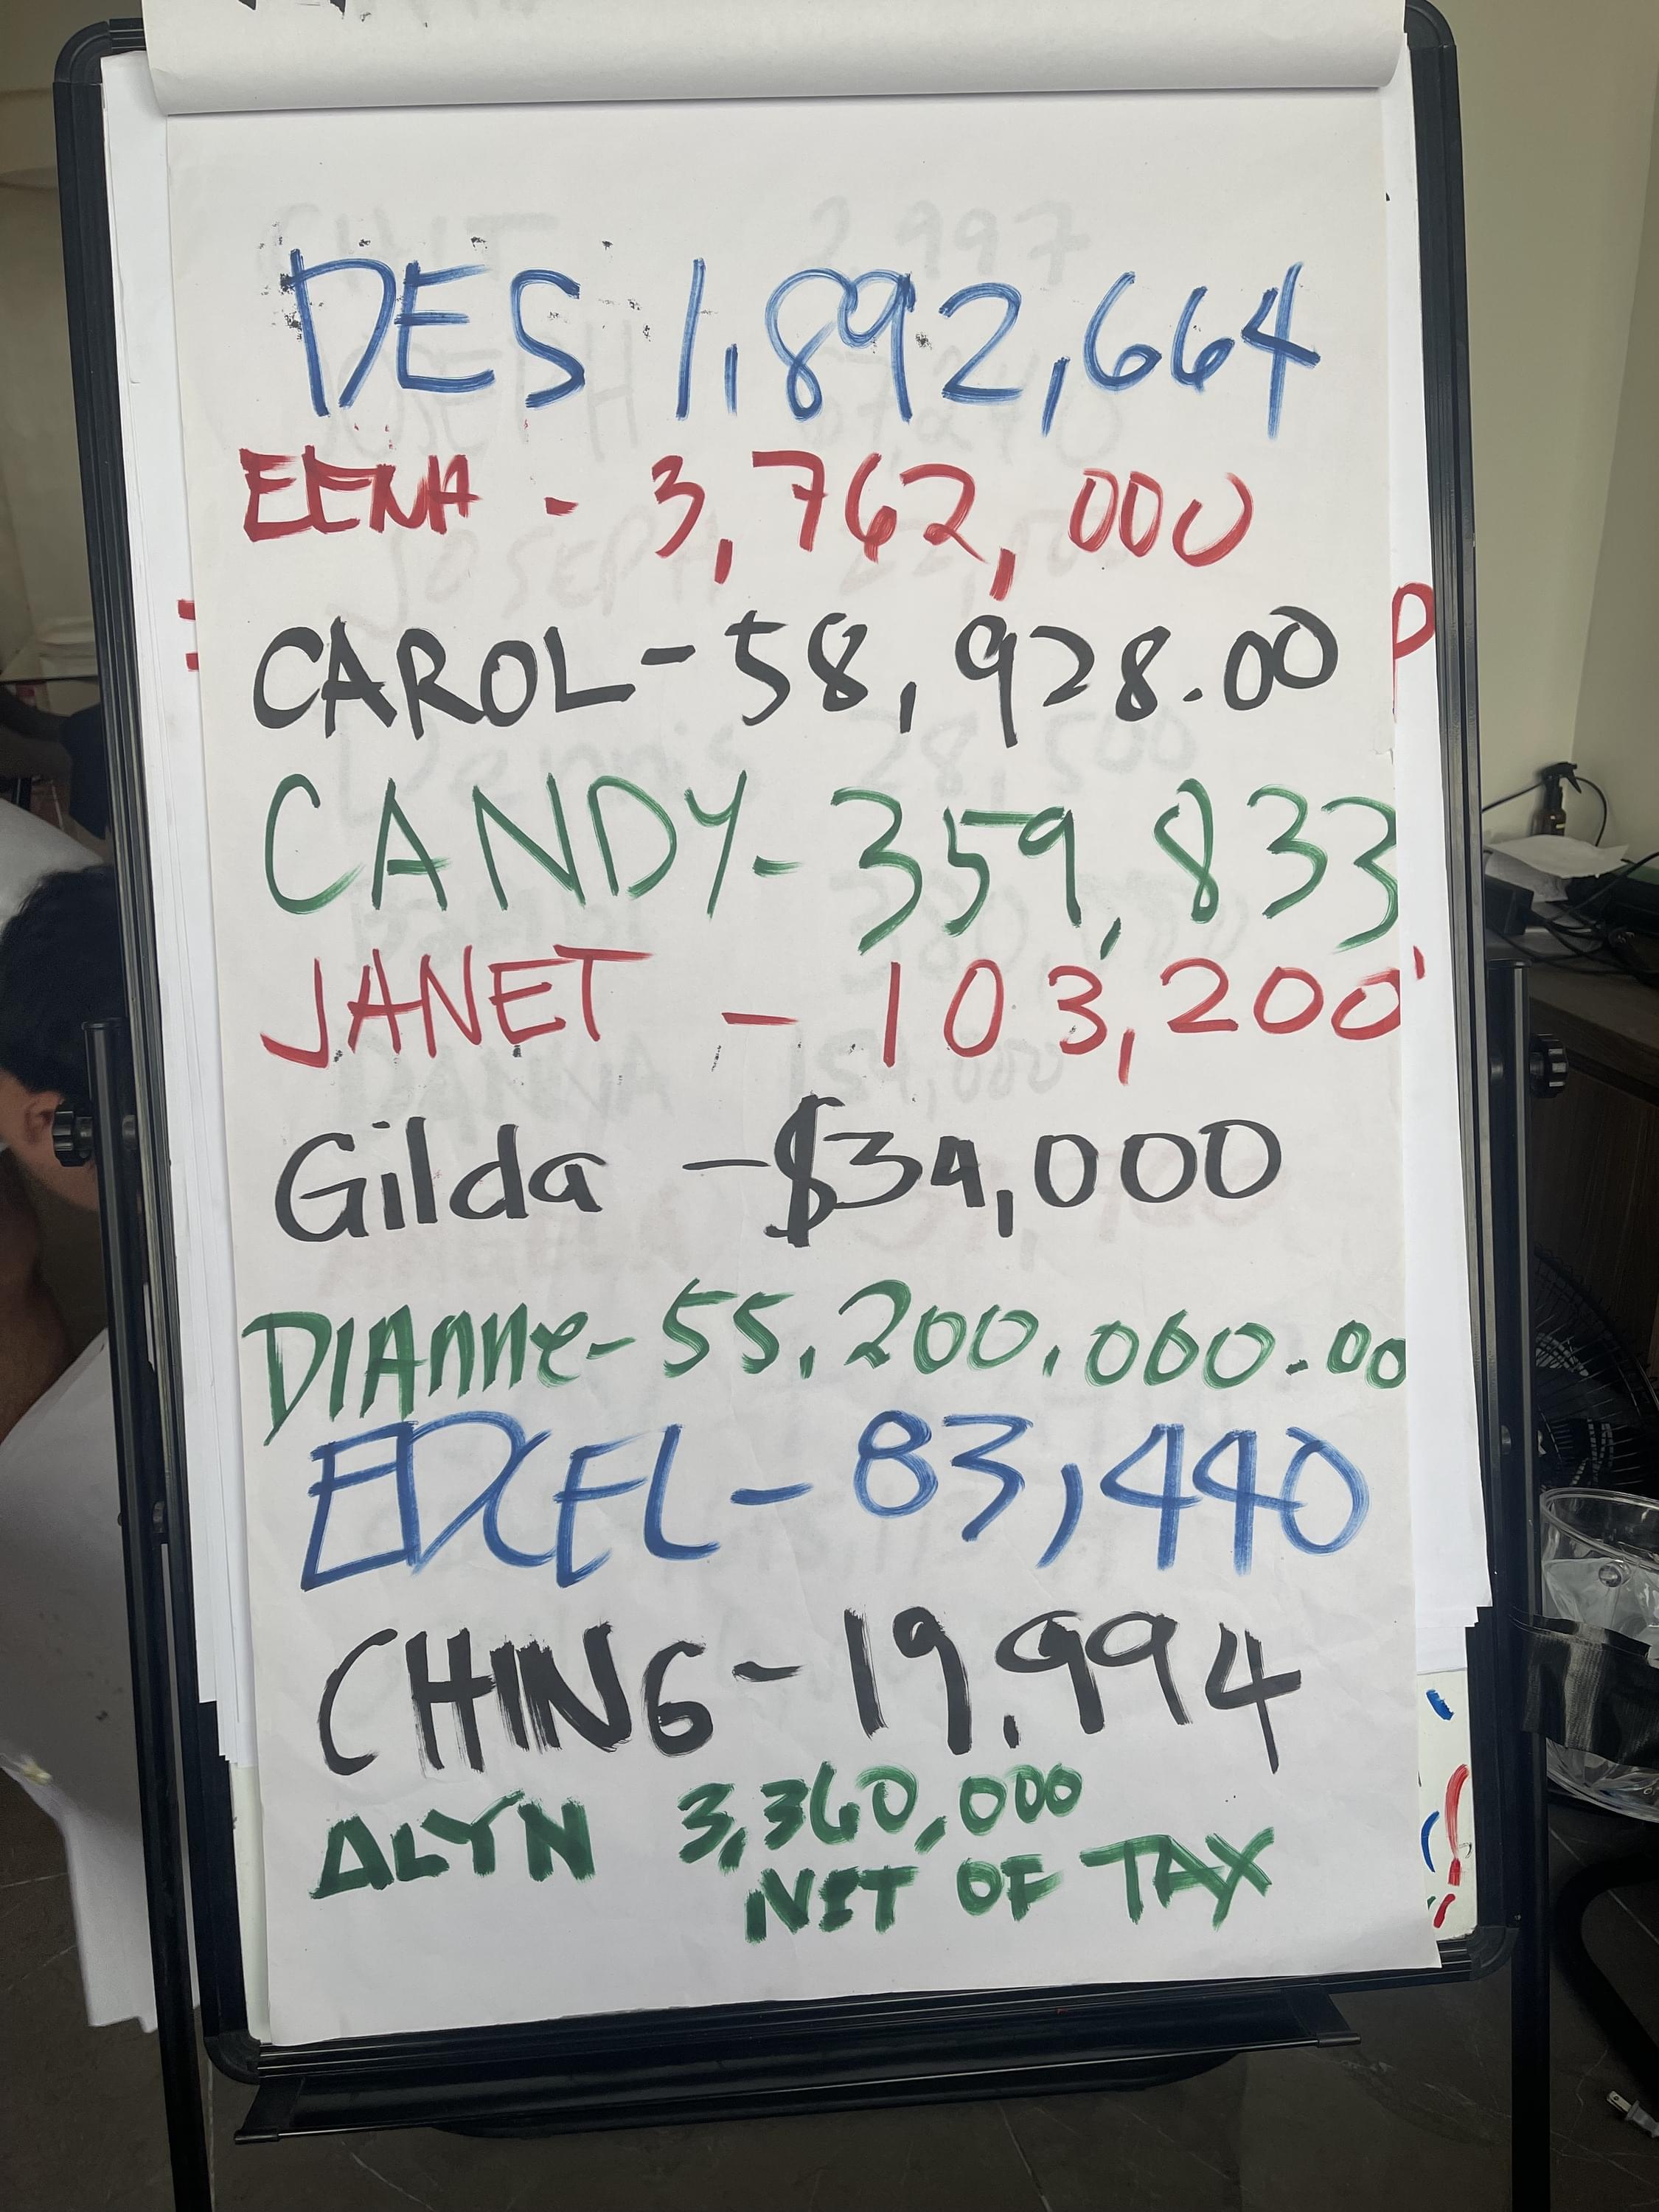 DES 1,892,664
EENA - 3,762,000
CAROL - 58,928.00
CANDY - 359,833
JANET - 103,200
Gilda - $34,000
DIAnne - 55,200,000.00
EDCEL - 83,440
CHING - 19,994
ALYN 3,360,000
NET OF TAX